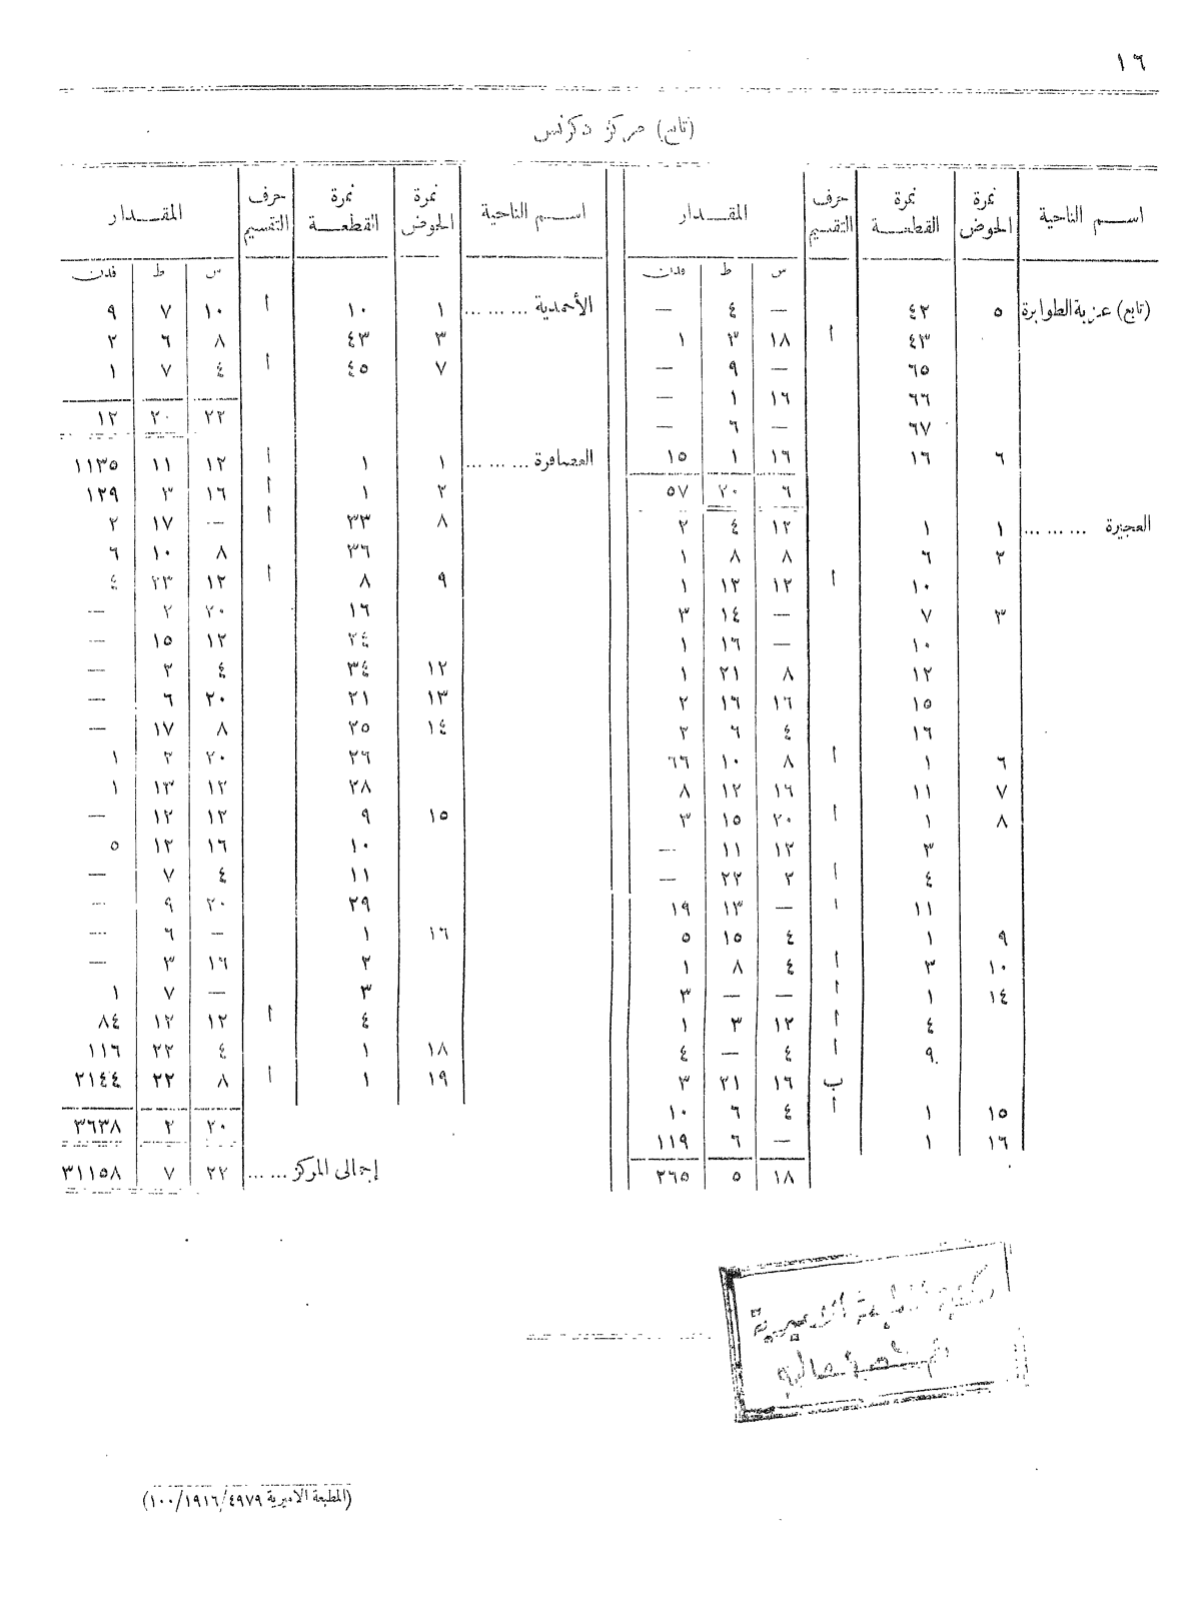 ١٦
(تابع) مركز دكرنس
اسم الناحية نمرة الحوض نمرة القطعة حرف التقسيم المقدار
س ط فدن
(تابع) عزبة الطوابرة ٥ ٤٢ — ٤ —
٤٣ أ ١٨ ٣ ١
٦٥ — ٩ —
٦٦ ١٦ ١ —
٦٧ — ٦ —
٦ ١٦ ١٦ ١ ١٥
٦ ٢٠ ٥٧
العجيرة ... ... ... ١ ١ ١٢ ٤ ٢
٢ ٦ ٨ ٨ ١
١٠ أ ١٢ ١٢ ١
٣ ٧ — ١٤ ٣
١٠ — ١٦ ١
١٢ ٨ ٢١ ١
١٥ ١٦ ١٦ ٢
١٦ ٤ ٦ ٢
٦ ١ أ ٨ ١٠ ٦٦
٧ ١١ ١٦ ١٢ ٨
٨ ١ أ ٢٠ ١٥ ٣
٣ ١٢ ١١ —
٤ أ ٢ ٢٢ —
١١ أ — ١٣ ١٩
٩ ١ ٤ ١٥ ٥
١٠ ٣ أ ٤ ٨ ١
١٤ ١ أ — — ٣
٤ أ ١٢ ٣ ١
٩ أ ٤ — ٤
ب ١٦ ٢١ ٣
١٥ ١ أ ٤ ٦ ١٠
١٦ ١ — ٦ ١١٩
١٨ ٥ ٢٦٥
اسم الناحية نمرة الحوض نمرة القطعة حرف التقسيم المقدار
س ط فدن
الأحمدية ... ... ... ١ ١٠ أ ١٠ ٧ ٩
٣ ٤٣ ٨ ٦ ٢
٧ ٤٥ أ ٤ ٧ ١
٢٢ ٢٠ ١٢
العصافرة ... ... ... ١ ١ أ ١٢ ١١ ١١٣٥
٢ ١ أ ١٦ ٣ ١٢٩
٨ ٣٣ أ — ١٧ ٢
٣٦ ٨ ١٠ ٦
٩ ٨ أ ١٢ ٢٣ ٤
١٦ ٢٠ ٢ —
٢٤ ١٢ ١٥ —
١٢ ٣٤ ٤ ٢ —
١٣ ٢١ ٢٠ ٦ —
١٤ ٢٥ ٨ ١٧ —
٢٦ ٢٠ ٢ ١
٢٨ ١٢ ١٣ ١
١٥ ٩ ١٢ ١٢ —
١٠ ١٦ ١٢ ٥
١١ ٤ ٧ —
٢٩ ٢٠ ٩ —
١٦ ١ — ٦ —
٢ ١٦ ٣ —
٣ — ٧ ١
٤ أ ١٢ ١٢ ٨٤
١٨ ١ ٤ ٢٢ ١١٦
١٩ ١ أ ٨ ٢٢ ٢١٤٤
٢٠ ٢ ٣٦٣٨
إجمالى المركز ... ... ٢٢ ٧ ٣١١٥٨
الاميرية
(المطبعة الاميرية ٤٩٧٩/١٩١٦/١٠٠)